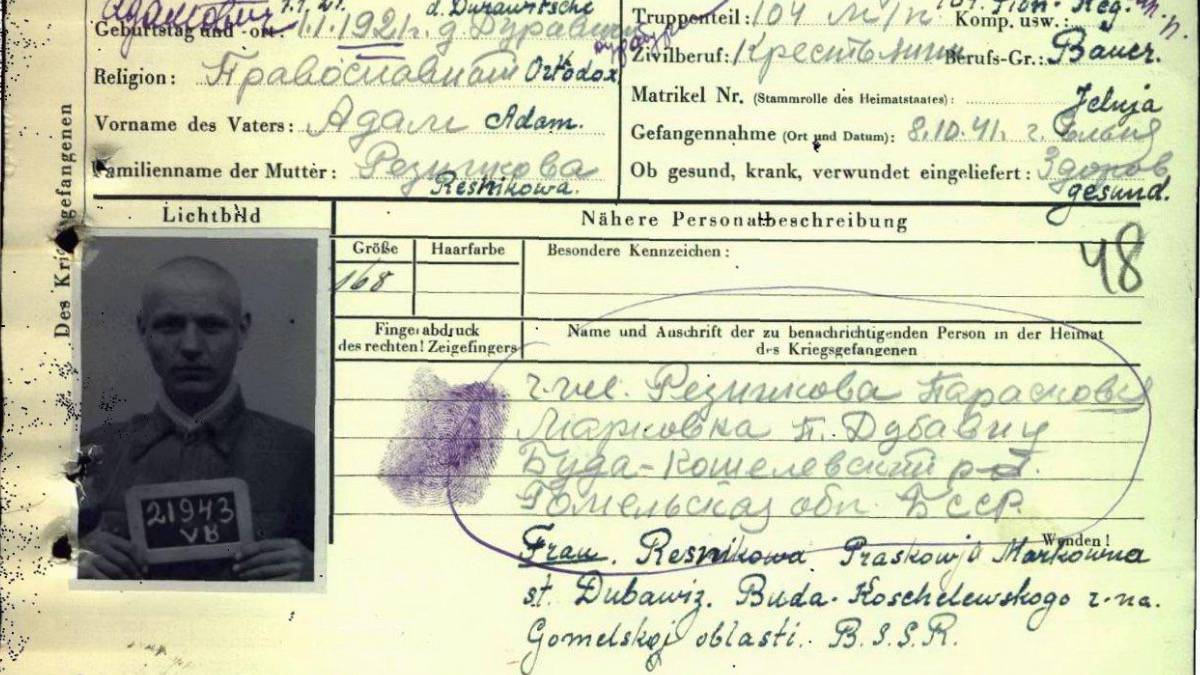 Адамович 1.1.21. d. Durawitsche
Geburtstag und -ort: 1.1.1921г. д. Дуравичи
Religion: Православный Ortodox
Vorname des Vaters: Адам Adam.
Familienname der Mutter: Резникова
Resnikowa.
Truppenteil: 104 Komp. usw.:
Zivilberuf: Крестьянин Berufs-Gr.: Bauer.
Matrikel Nr. (Stammrolle des Heimatstaates):
Jelnja
Gefangennahme (Ort und Datum): 8.10.41. г. Ельня
Ob gesund, krank, verwundet eingeliefert: Здоров
gesund.
Des Kriegsgefangenen
Lichtbild
Nähere Personalbeschreibung
Größe Haarfarbe Besondere Kennzeichen:
168
48
Fingerabdruck
des rechten! Zeigefingers
Name und Anschrift der zu benachrichtigenden Person in der Heimat
des Kriegsgefangenen
Резникова Парасковья
Марковна п. Дубавиц
Буда-Кошелевский
Гомельская обл. БССР.
Wenden!
Frau. Resnikowa Praskowja Markowna
st. Dubawiz. Buda-Koschelewskogo r-na.
Gomelskoj oblasti. B.S.S.R.
21943
VB